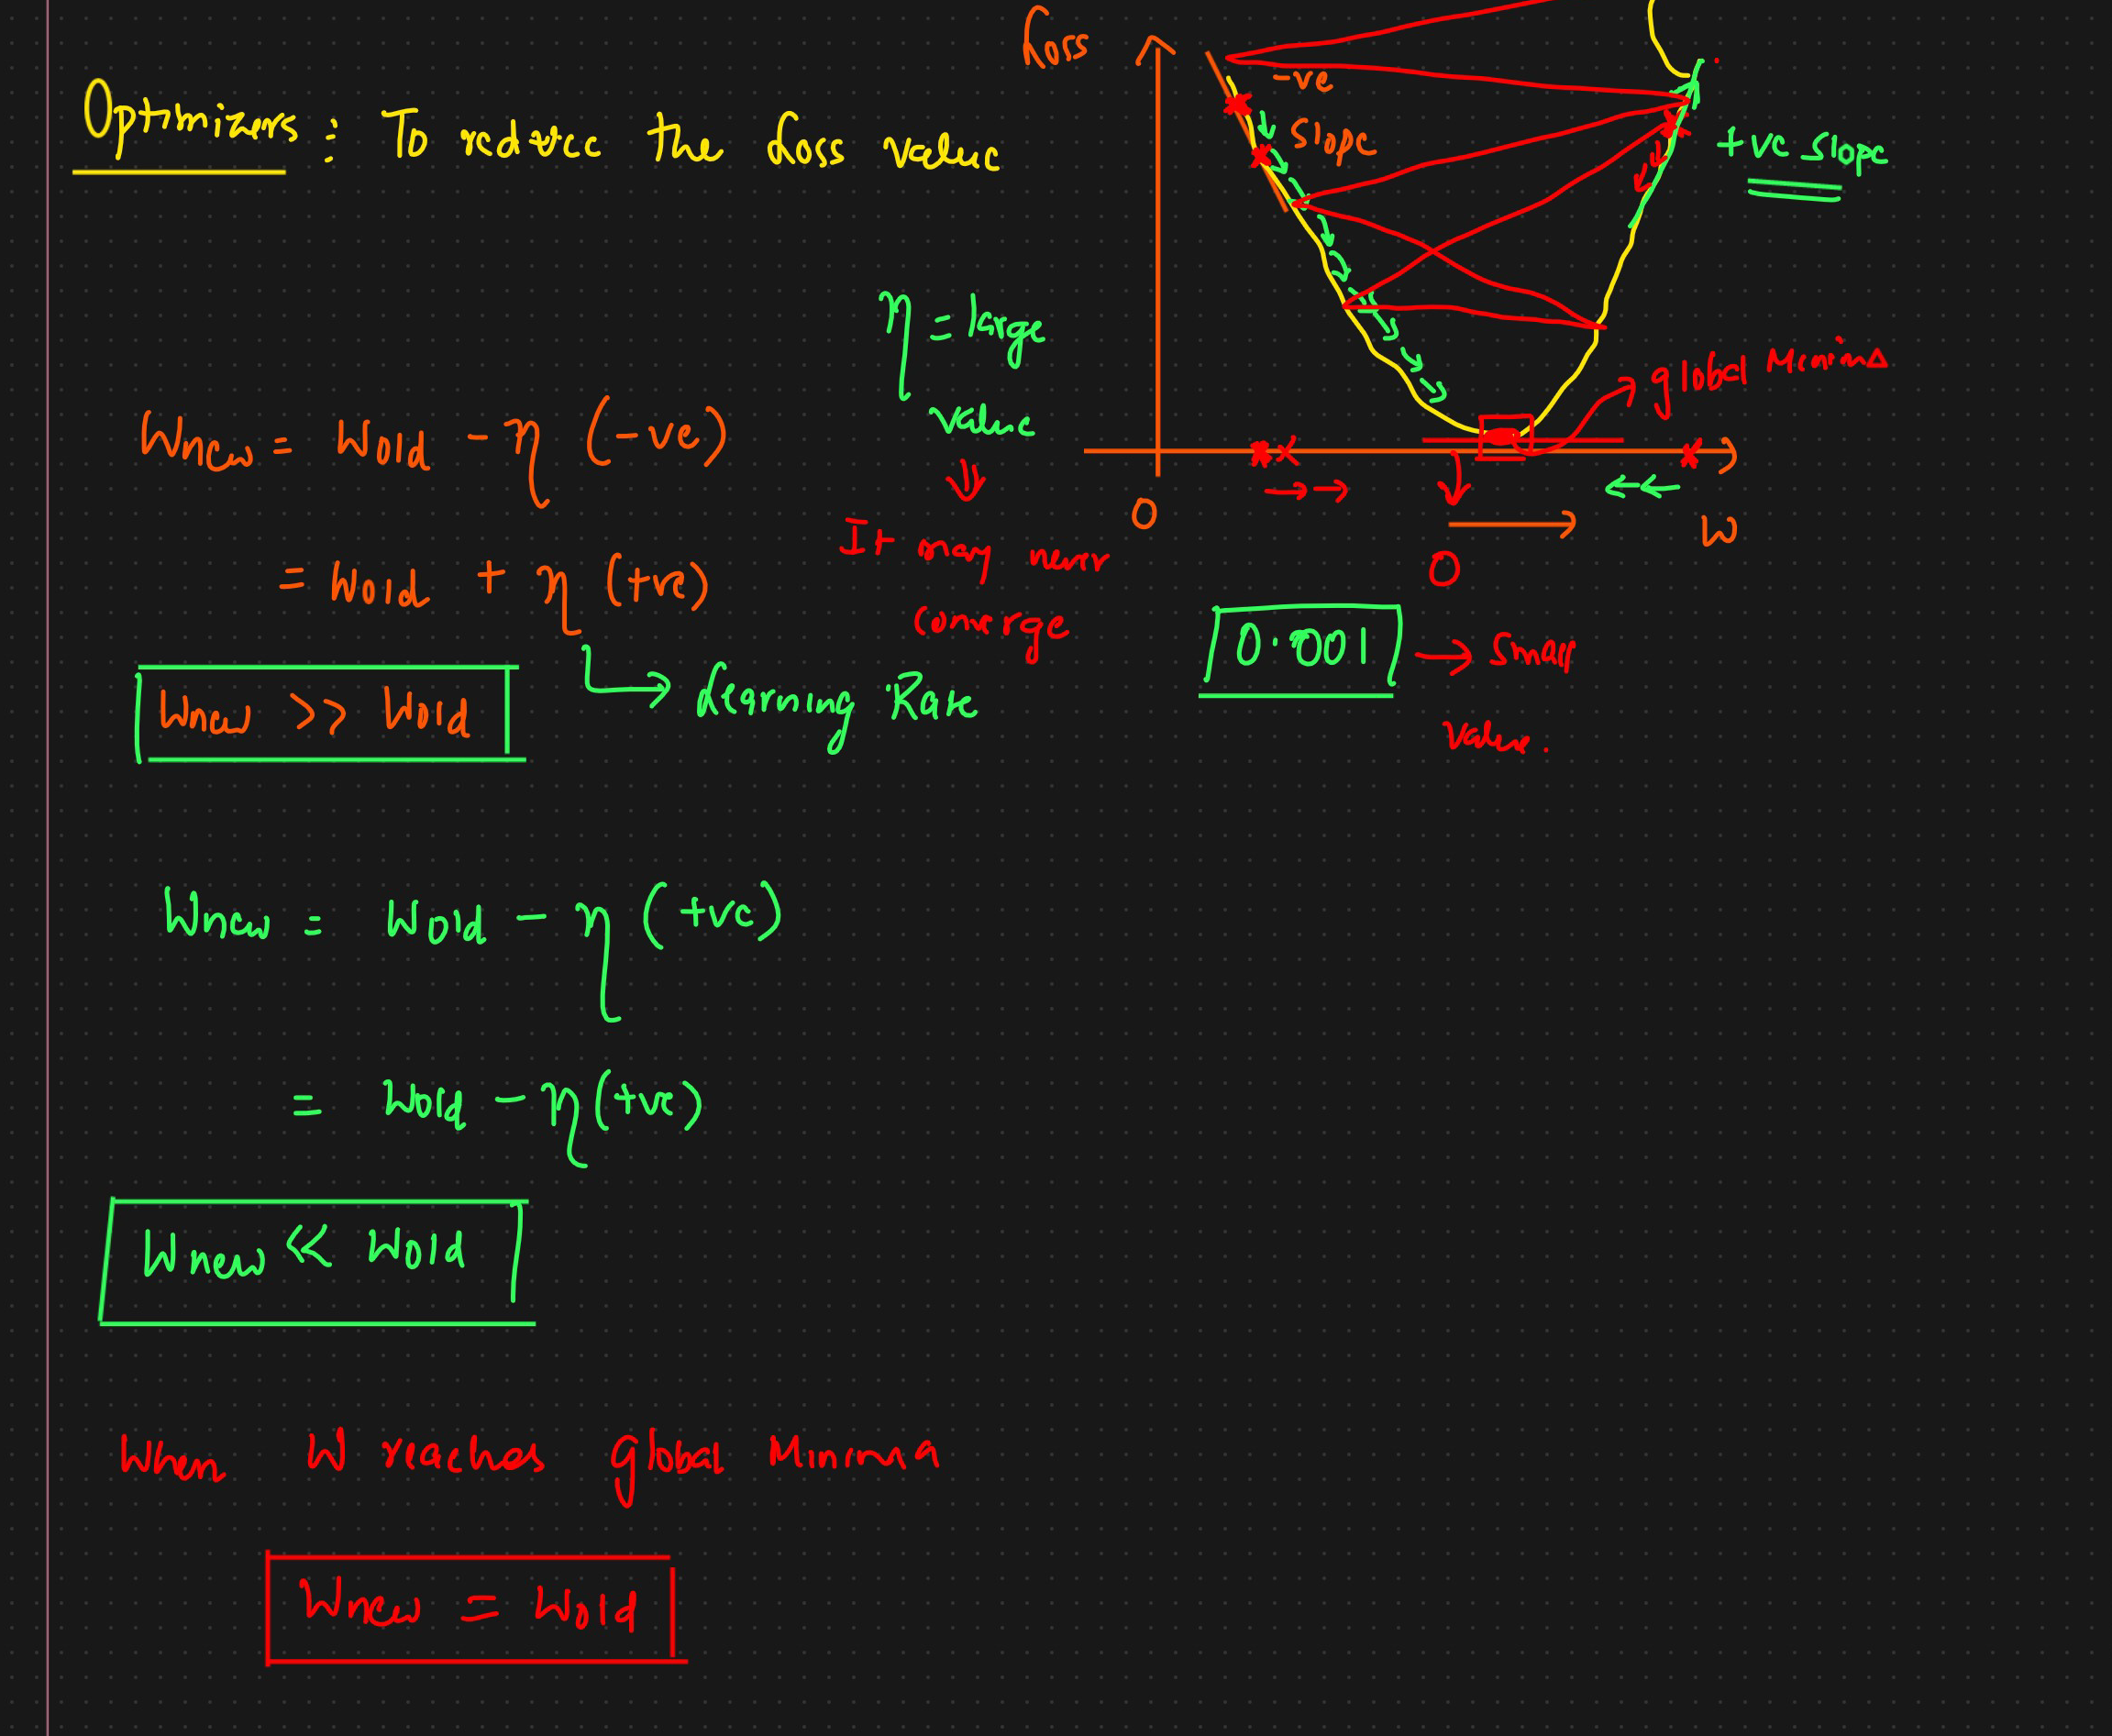 Optimizers : To reduce the Loss value
Loss
-ve
slope
+ve slope
η = large
value
It may never
converge
global Minima
0
W
0
0.001 → small
value.
Wnew = Wold - η (-ve)
= Wold + η (+ve)
Learning Rate
Wnew >> Wold
Wnew = Wold - η (+ve)
= Wold - η (+ve)
Wnew << Wold
When W reaches global Minima
Wnew = Wold